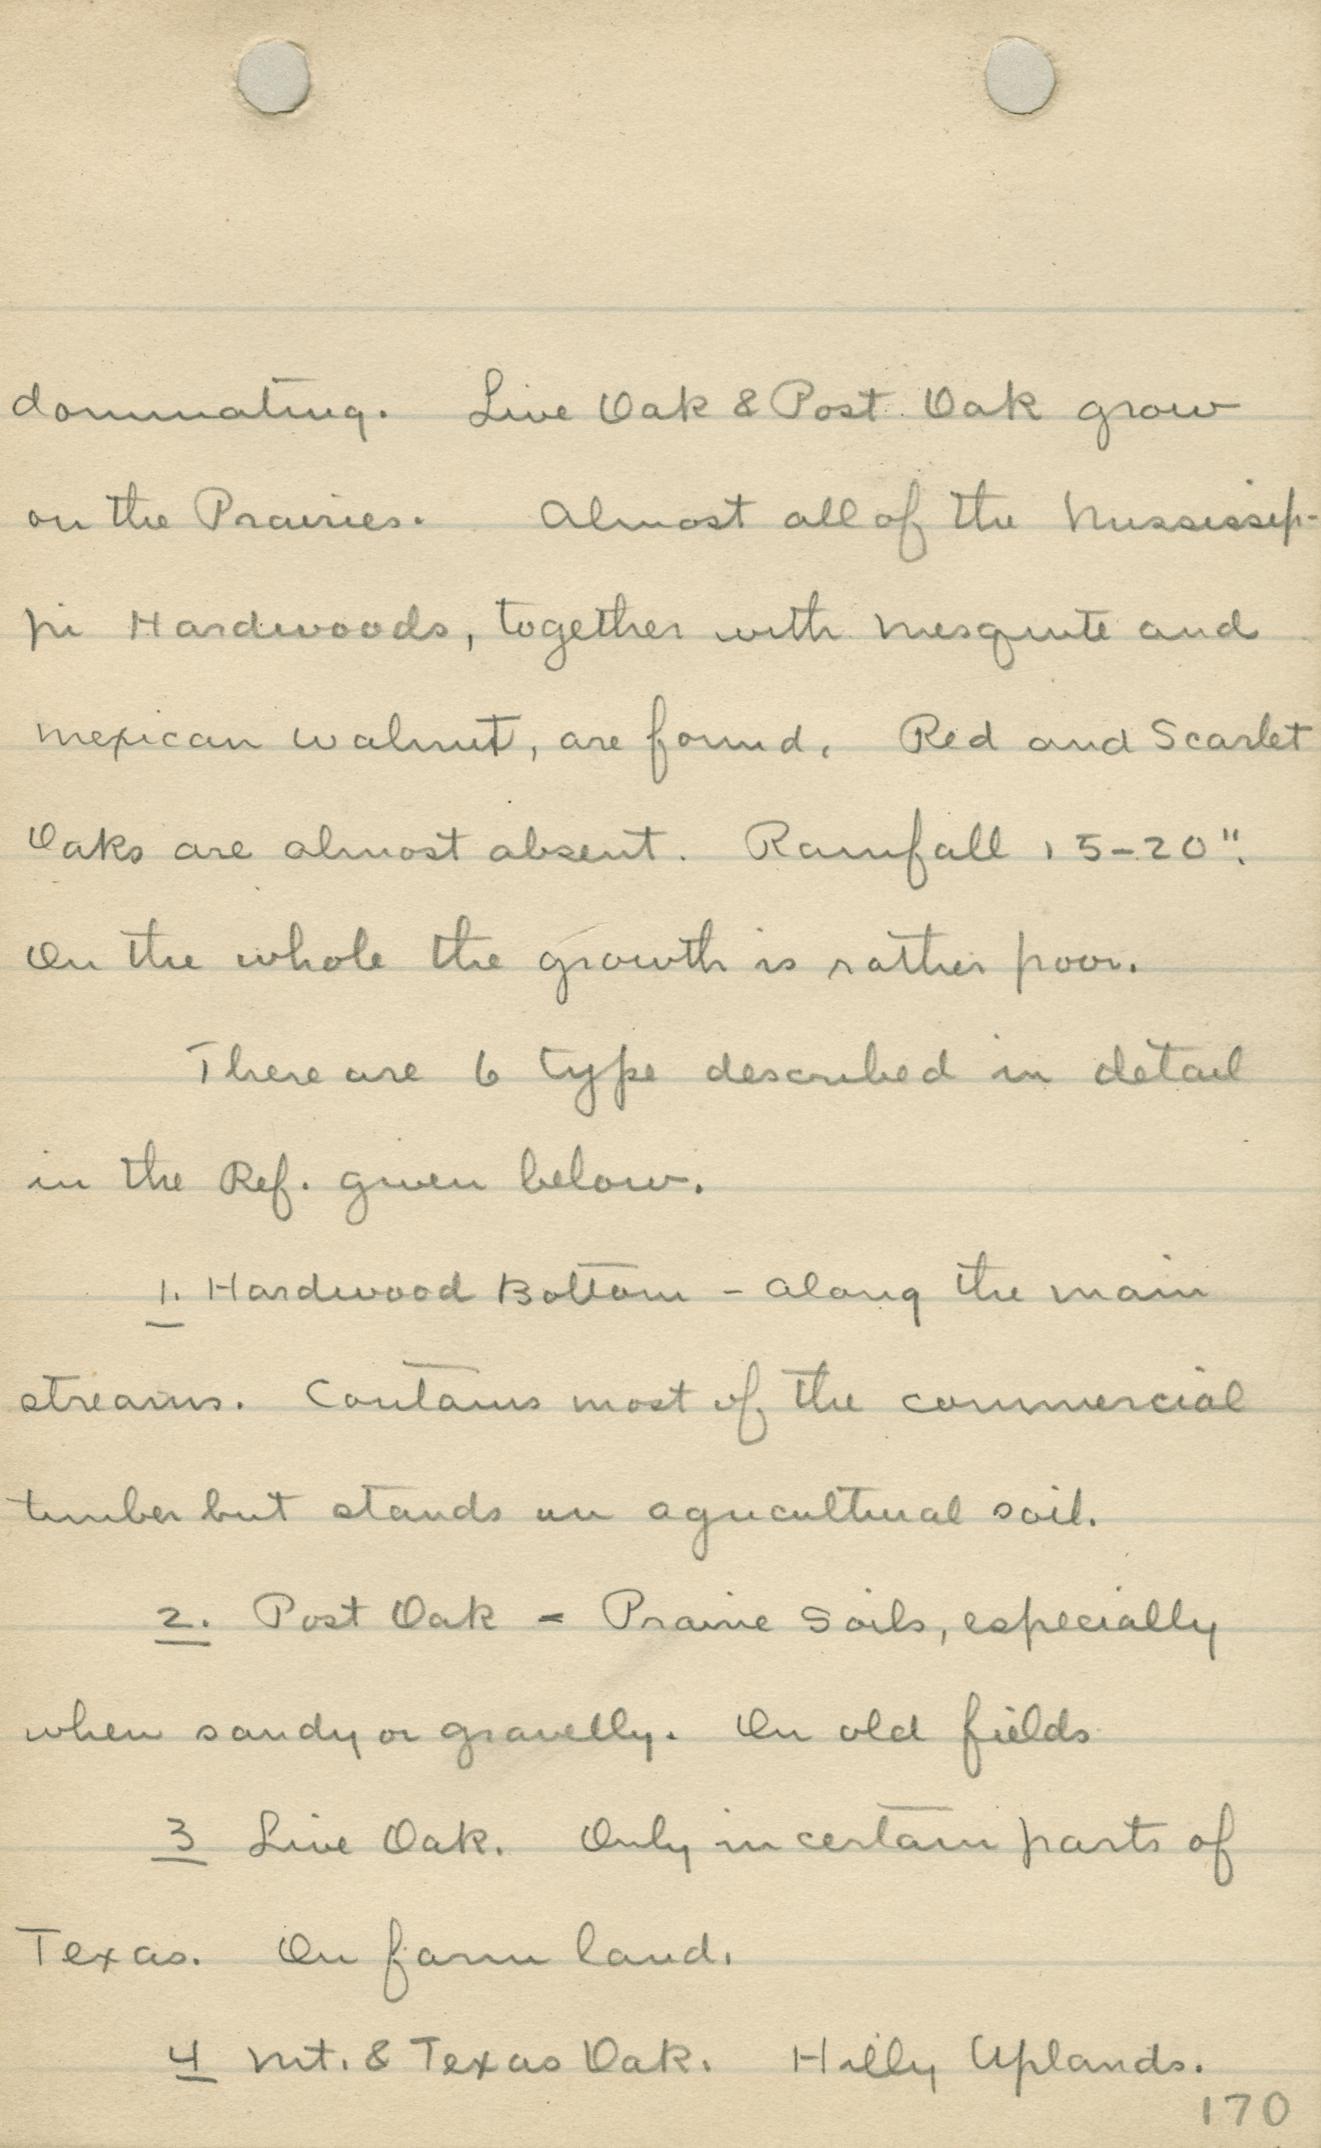 dominating. Live Oak & Post Oak grow
on the Prairies. Almost all of the Mississip-
pi Hardwoods, together with mesquite and
mexican walnut, are found. Red and Scarlet
Oaks are almost absent. Rainfall 15-20".
On the whole the growth is rather poor.
There are 6 type described in detail
in the Ref. given below.
1. Hardwood Bottom - along the main
streams. Contains most of the commercial
timber but stands on agricultural soil.
2. Post Oak - Prairie Soils, especially
when sandy or gravelly. On old fields
3 Live Oak. Only in certain parts of
Texas. On farm land.
4 Mt. & Texas Oak. Hilly Uplands.
170